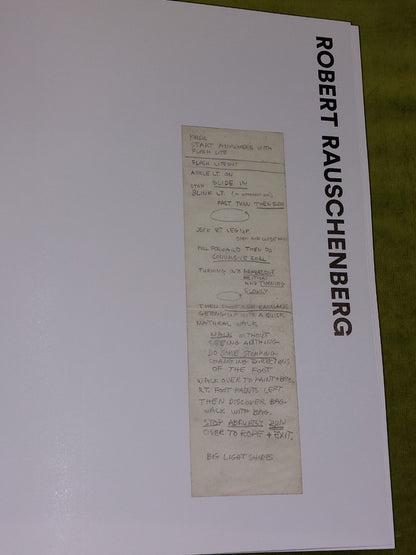 ROBERT RAUSCHENBERG
START ANYWHERE WITH
FLASH LITE
FLASH LITE OUT
ANKLE LT. ON
STOP SLIDE IN
BLINK LT.
FAST THEN THEN SLOW
JERK RT LEG UP
FALL FORWARD THEN DO
CONVULSIVE ROLL
TURNING INTO
AND TURNING
SLOWLY
THEN
GETTING UP INTO A QUICK
NATURAL WALK
WALK WITHOUT
SEEING ANYTHING
DO SOME STOMPING
CHANGING DIRECTIONS
OF THE FOOT
WALK OVER TO PAINT + BAG
RT. FOOT PAINTS LEFT.
THEN DISCOVER BAG.
WALK WITH BAG.
STOP ABRUPTLY RUN
OVER TO ROPE + EXIT.
BIG LIGHT SHOES